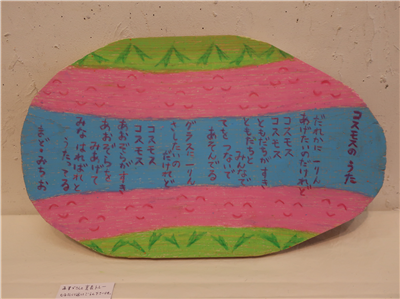 コスモスの うた
だれかに 一りん
あげたいのだけれど
コスモス
コスモス
ともだちが すき
ともだちと
みんなで
てを つないで
あそんでる
グラスに 一りん
さしたいの
だけれど
コスモス
コスモス
あおぞらが すき
あおぞらを
みあげて
みな はればれと
うたってる
まど・みちお